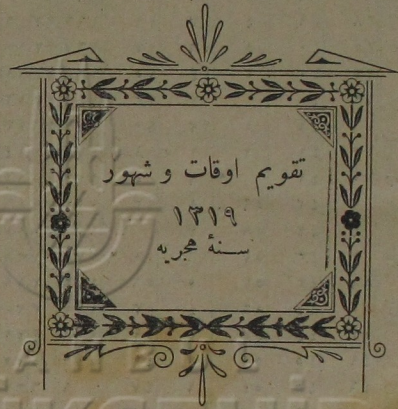 تقويم اوقات و شهور
١٣١٩
سنۀ هجريه